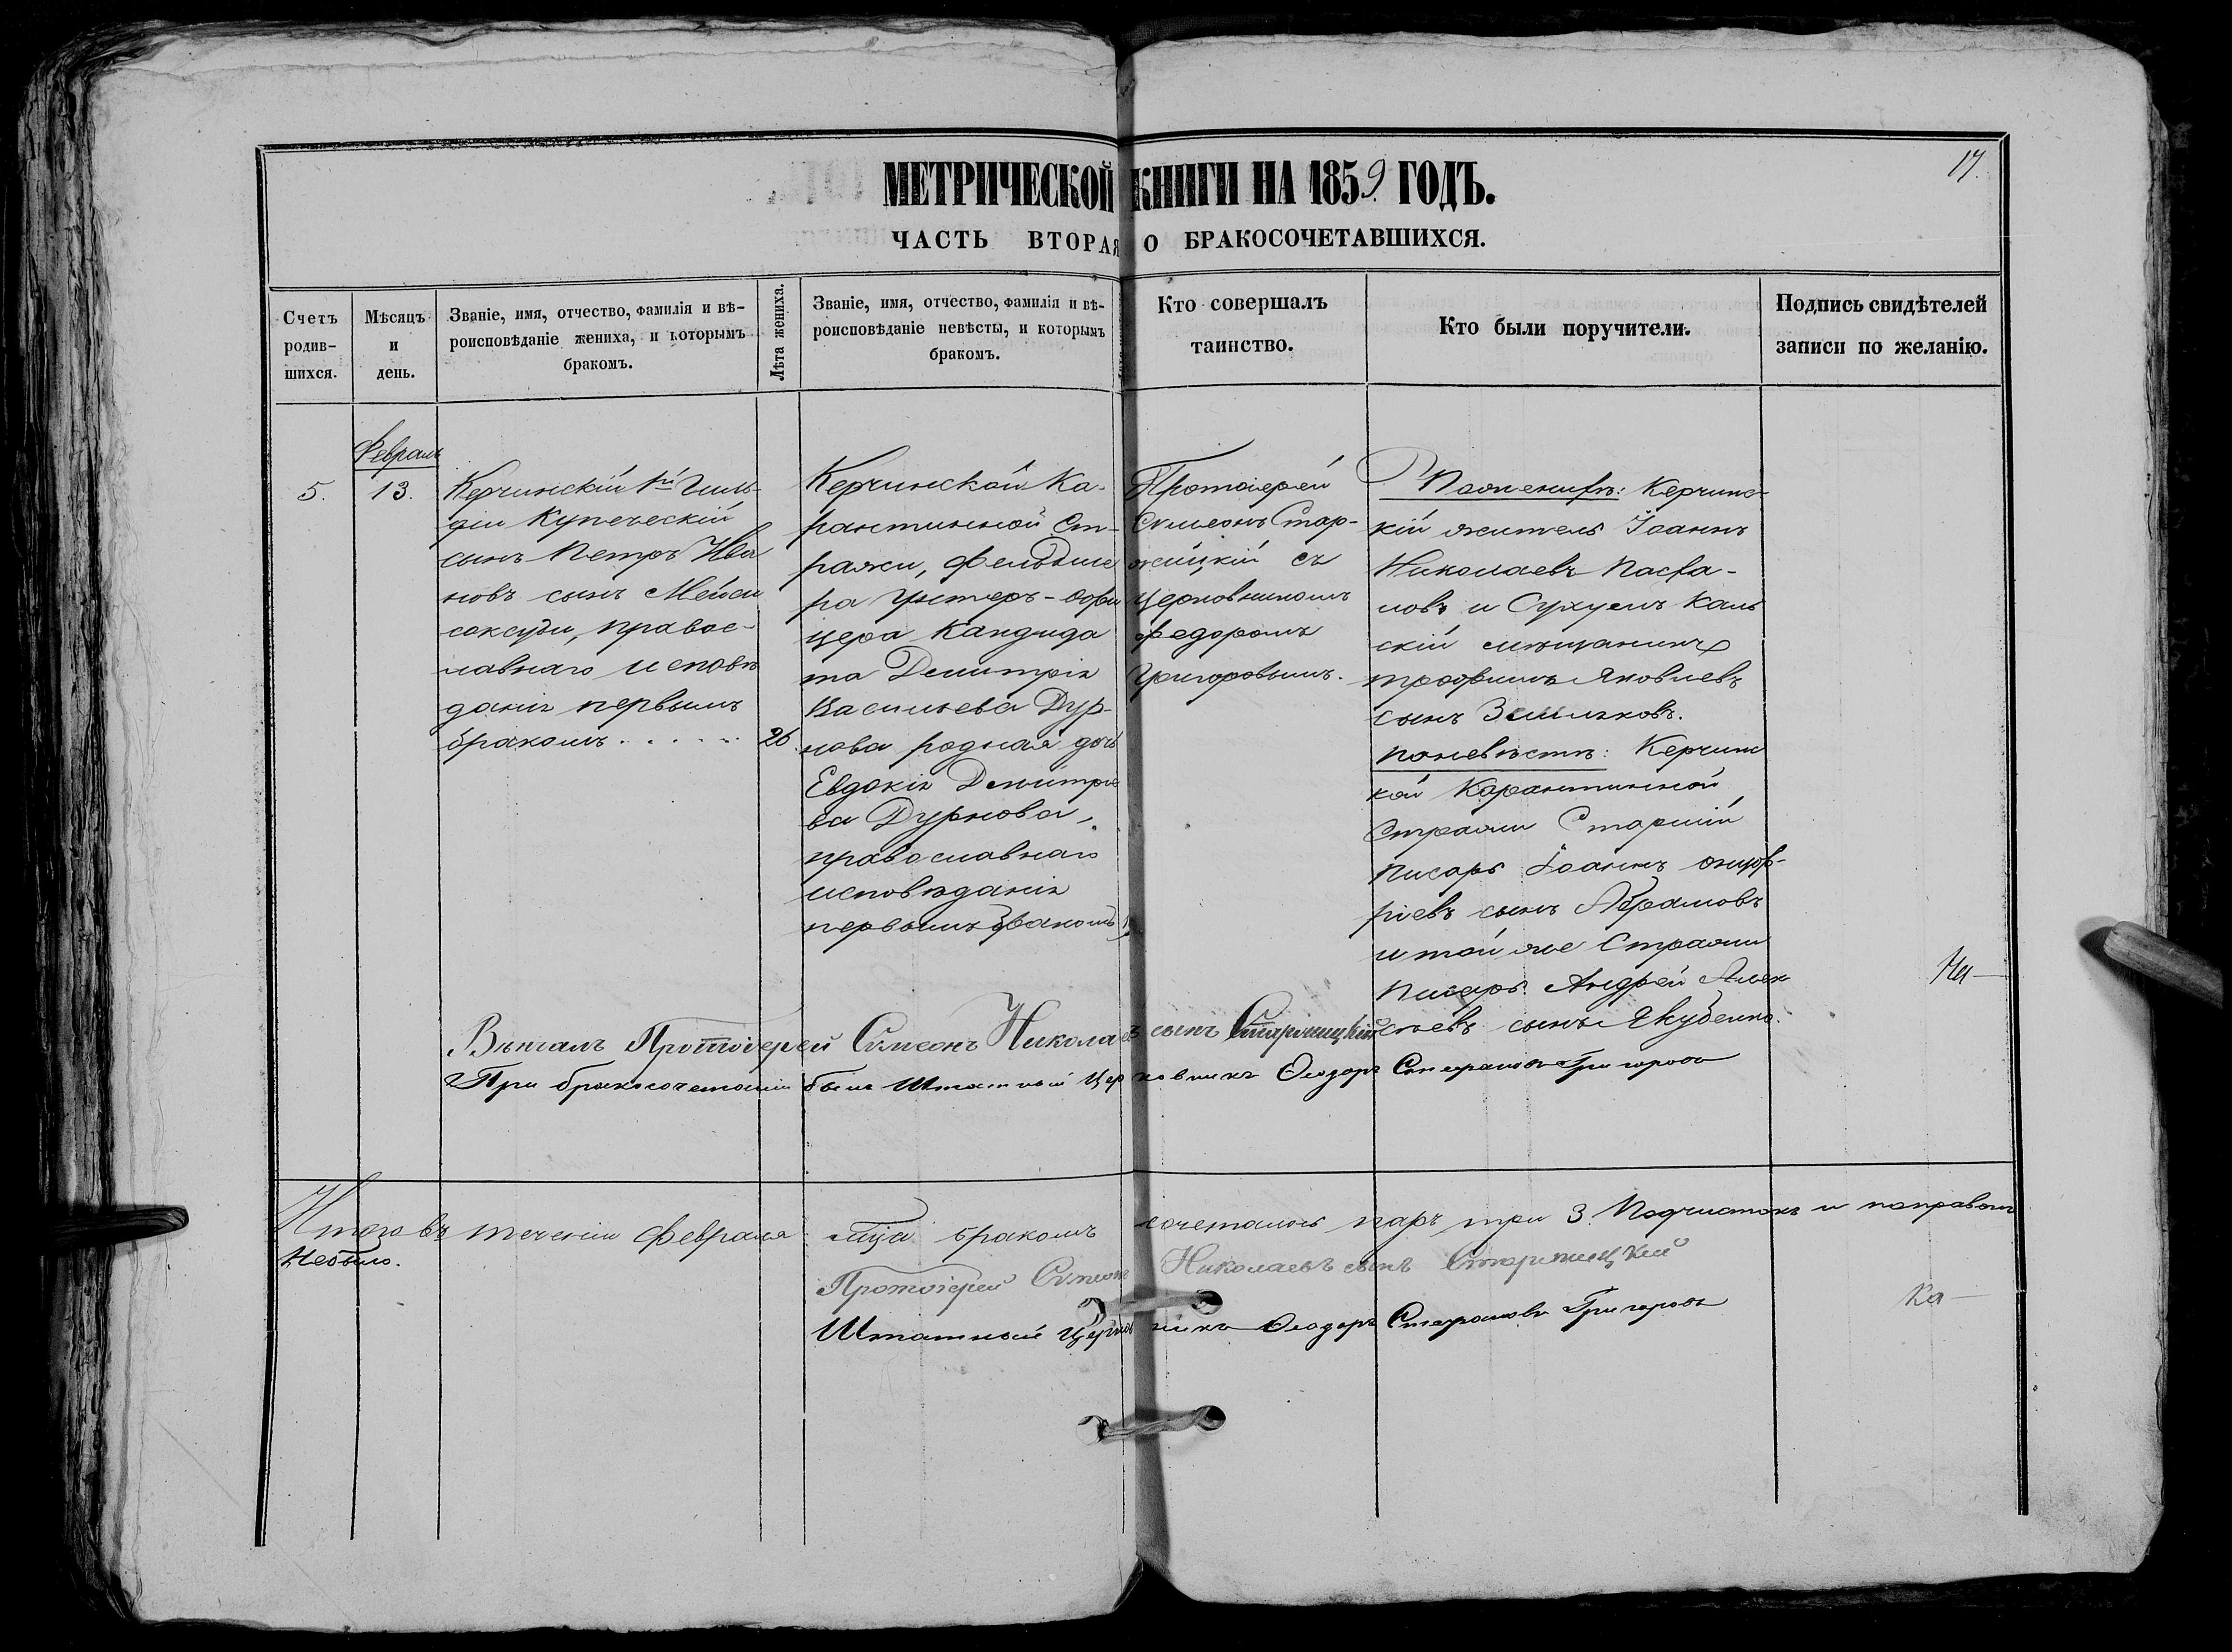 17.
МЕТРИЧЕСКОЙ КНИГИ НА 1859 ГОДЪ.
ЧАСТЬ ВТОРАЯ О БРАКОСОЧЕТАВШИХСЯ.
Счетъ
родив-
шихся.
Мѣсяцъ
и
день.
Званіе, имя, отчество, фамилія и вѣ-
роисповѣданіе жениха, и которымъ
бракомъ.
Лѣта жениха.
Званіе, имя, отчество, фамилія и вѣ-
роисповѣданіе невѣсты, и которымъ
бракомъ.
Кто совершалъ
таинство.
Кто были поручители.
Подпись свидѣтелей
записи по желанію.
5.
Февраль
13.
Керчинскій 1й Гиль-
діи Купеческій
сынъ Петръ Ива
новъ сынъ
правос-
лавнаго исповѣ
данія первымъ
бракомъ . . . . . .
26
Керчинской Ка-
рантинной Ст-
ражи, Фельдше
ра Унтеръ-офи
цера Кандида
та Димитрія
Васильева Дур-
нова родная дочь
Евдокія Димитріе
ва Дурнова,
православнаго
исповѣданія
первымъ бракомъ
Протоіерей
Сѵмеонъ Стар-
жицкій съ
Церковникомъ
Федоромъ
Григоровымъ.
По женихѣ: Керчинс-
кій житель Іоаннъ
Николаевъ
новъ и Сухумъ Каль
скій мѣщанинъ
трофимъ Яковлевъ
сынъ
по невѣстѣ: Керчинс
кой Карантинной
Стражи Старшій
Писарь Іоаннъ онуф-
ріевъ сынъ Абрамовъ
и той же Стражи
Писарь Андрей Алек
сѣевъ сынъ Якубенко.
На—
Вѣнчалъ Протоіерей Сѵмеонъ Николаевъ сынъ Старжицкій
При бракосочетаніи былъ Штатный Церковникъ Ѳеодоръ Стефановъ Григоровъ
Итого въ теченіи Февраля мца бракомъ сочеталось паръ три 3. Подчистокъ и поправокъ
Небыло.
Протоіерей Сѵмеонъ Николаевъ сынъ Старжицкій
Штатный Церковникъ Ѳеодоръ Стефановъ Григоровъ
Ка—